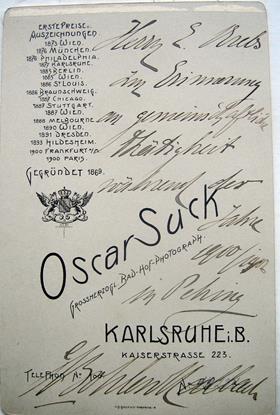 ERSTE PREISE U.
AUSZEICHNUNGEN.
1873 WIEN.
1876 MÜNCHEN.
1876 PHILADELPHIA.
1877 KARLSRUHE.
1883 BERLIN.
WIEN.
ST LOUIS.
1886 BRAUNSCHWEIG.
CHICAGO.
1887 STUTTGART.
1887 WIEN.
1888 MELBOURNE
1890 WIEN.
1891 DRESDEN.
1893 HILDESHEIM.
1900 FRANKFURT A/M
1900 PARIS
GEGRÜNDET 1869.
Herrn E.
zur Erinnerung
an gemeinschaftliche
Thätigkeit
während der
Jahre
1900
in Peking
OSCAR SUCK
GROSSHERZOGL. BAD. HOF-PHOTOGRAPH.
KARLSRUHE i.B.
KAISERSTRASSE 223.
TELEPHON